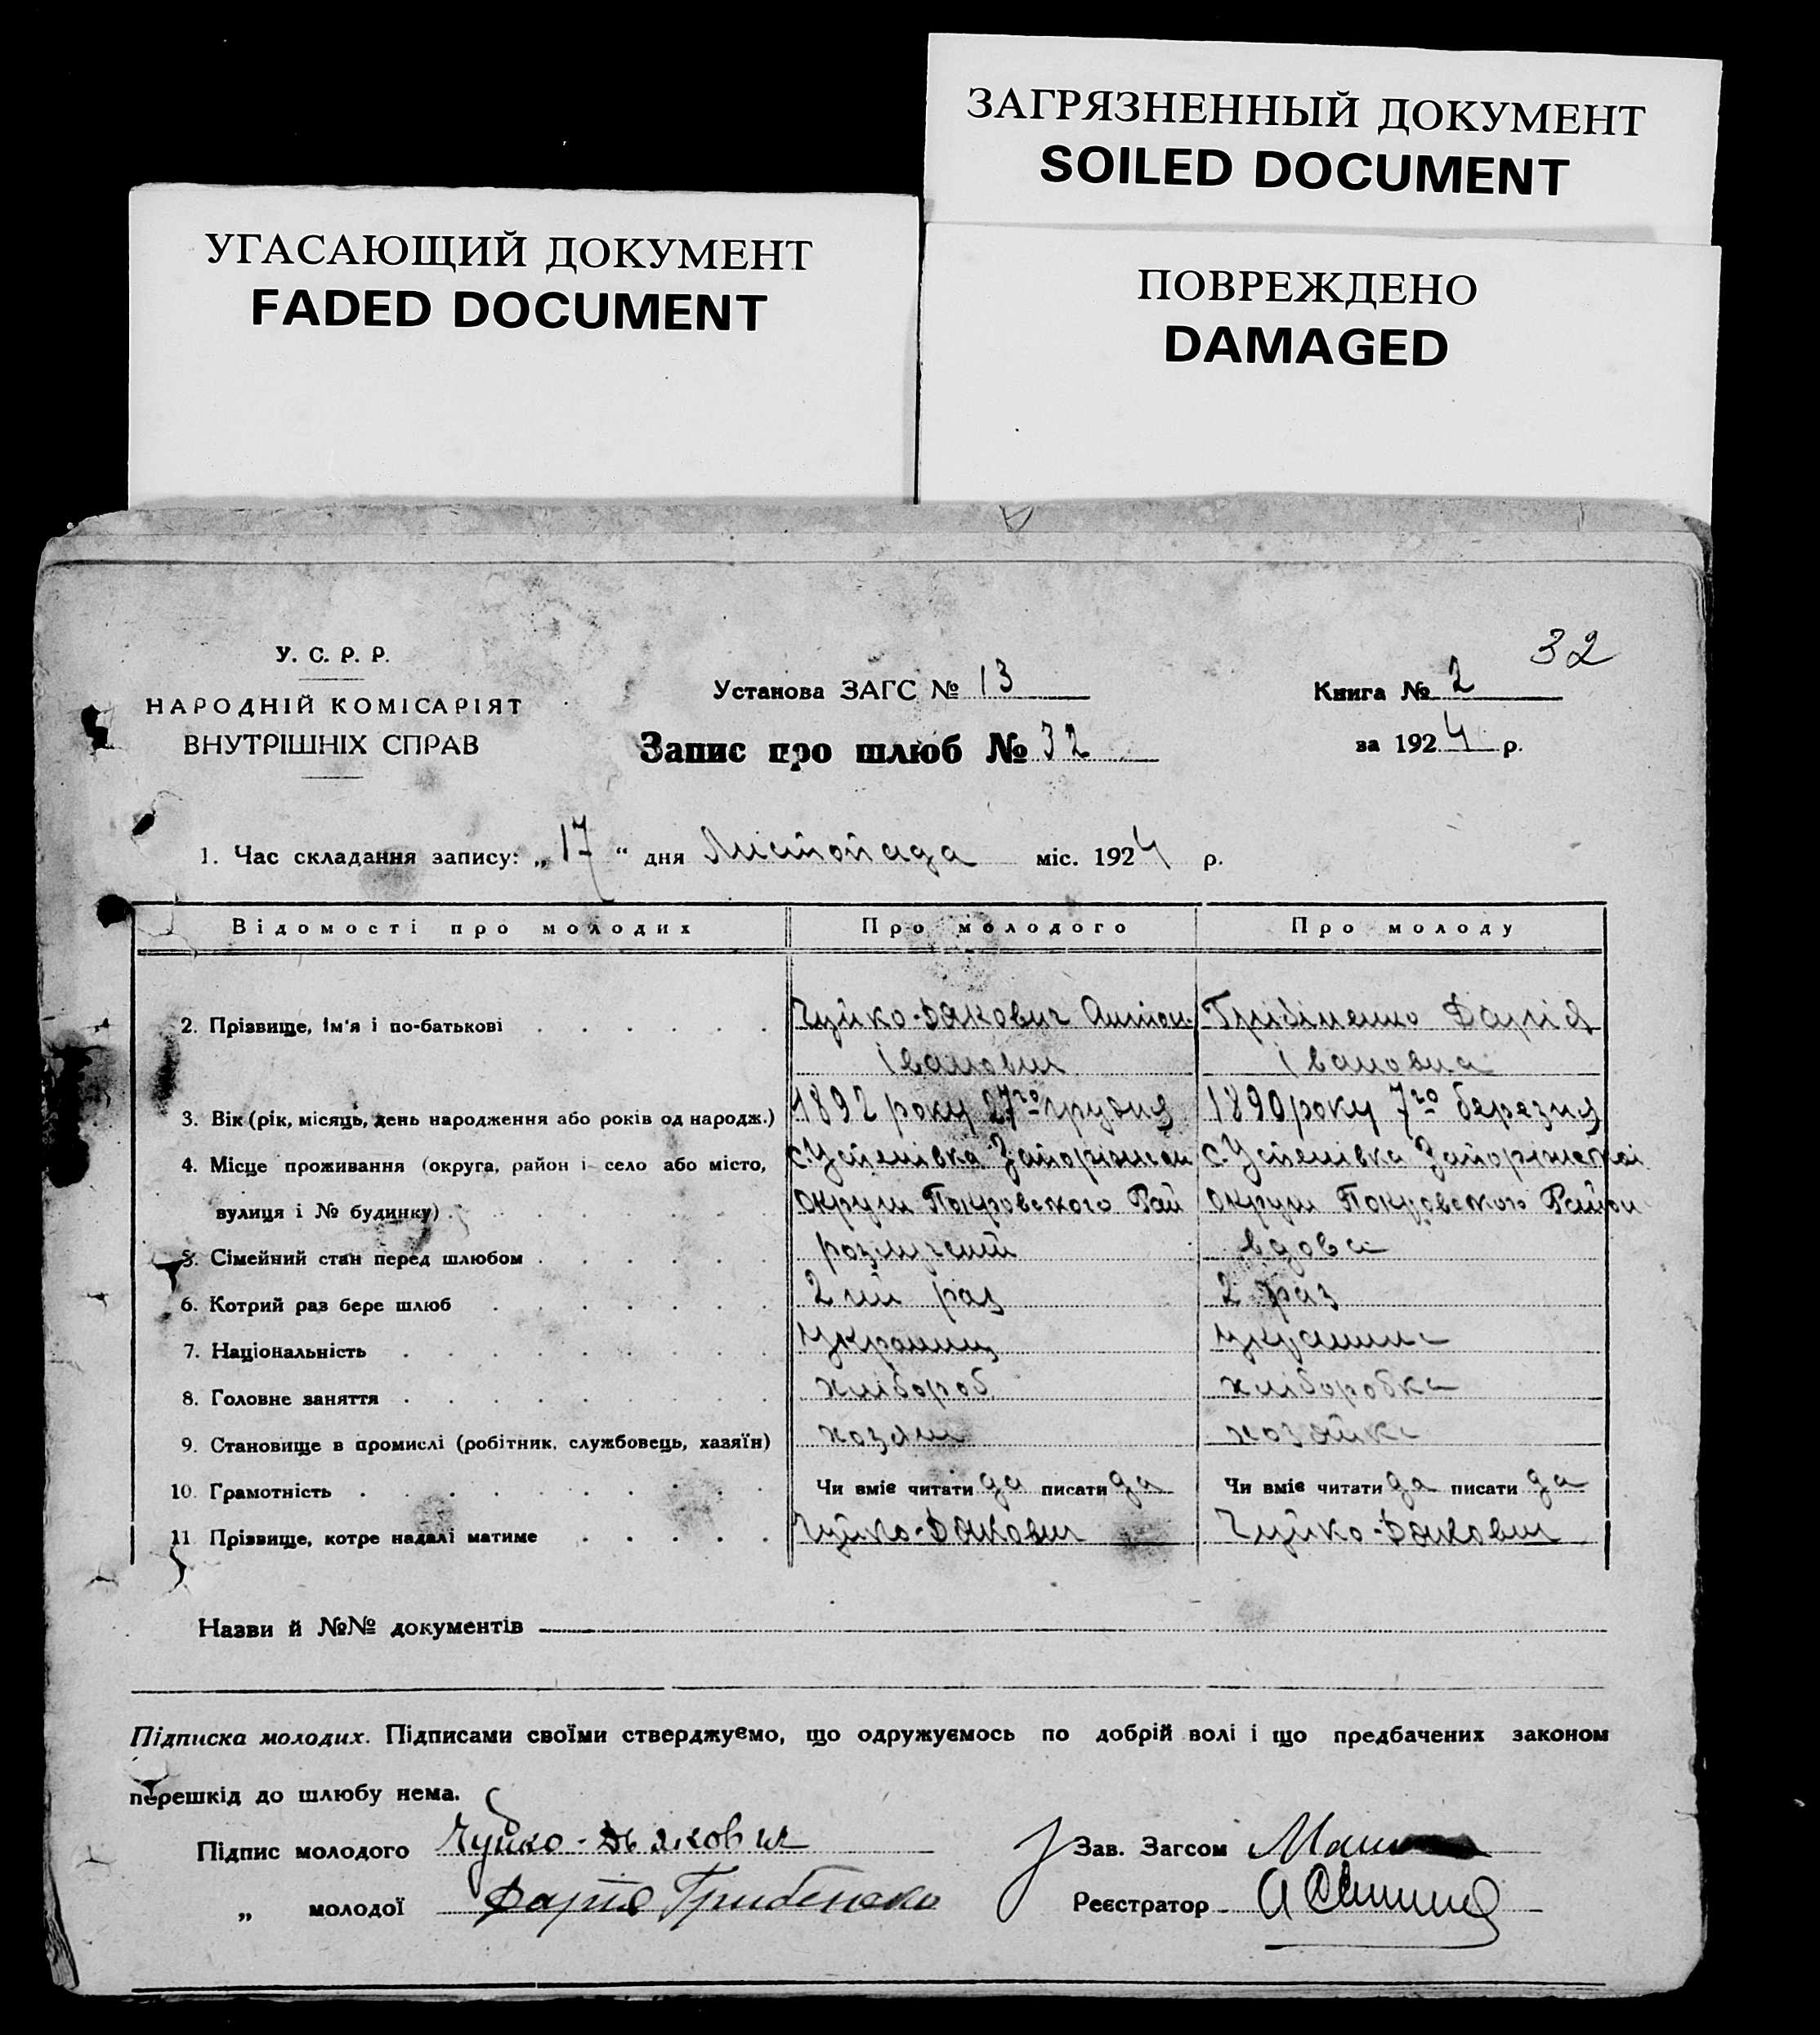 ЗАГРЯЗНЕННЫЙ ДОКУМЕНТ
SOILED DOCUMENT
УГАСАЮЩИЙ ДОКУМЕНТ
FADED DOCUMENT
ПОВРЕЖДЕНО
DAMAGED
32
У. С. Р. Р.
НАРОДНІЙ КОМІСАРІЯТ
ВНУТРІШНІХ СПРАВ
Установа ЗАГС № 13
Запис про шлюб № 32
Книга № 2
за 1924 р.
1. Час складання запису: „17“ дня Листопада міс. 1924 р.
Відомості про молодих Про молодого Про молоду
2. Прізвище, ім'я і по-батькові Чуйко-Дякович Антон Дарія
Іванович Івановна
3. Вік (рік, місяць, день народження або років од народж.) 1892 року 27го грудня 1890 року 7го березня
4. Місце проживання (округа, район і село або місто, с. Успенівка с. Успенівка Запоріжскої
вулиця і № будинку) округи Покровського Рай округи Покровського Район
5. Сімейний стан перед шлюбом розлучений вдова
6. Котрий раз бере шлюб 2 ий раз 2 раз
7. Національність Украинц украинка
8. Головне заняття хлібороб хліборобка
9. Становище в промислі (робітник, службовець, хазяїн) хозяин хозяйка
10. Грамотність Чи вміє читати да писати да Чи вміє читати да писати да
11 Прізвище, котре надалі матиме Чуйко-Дякович Чуйко-Дякович
Назви й №№ документів
Підписка молодих. Підписами своїми стверджуємо, що одружуємось по добрій волі і що предбачених законом
перешкід до шлюбу нема.
Підпис молодого Чуйко-Дьякович Зав. Загсом
„ молодої Дарія Реєстратор